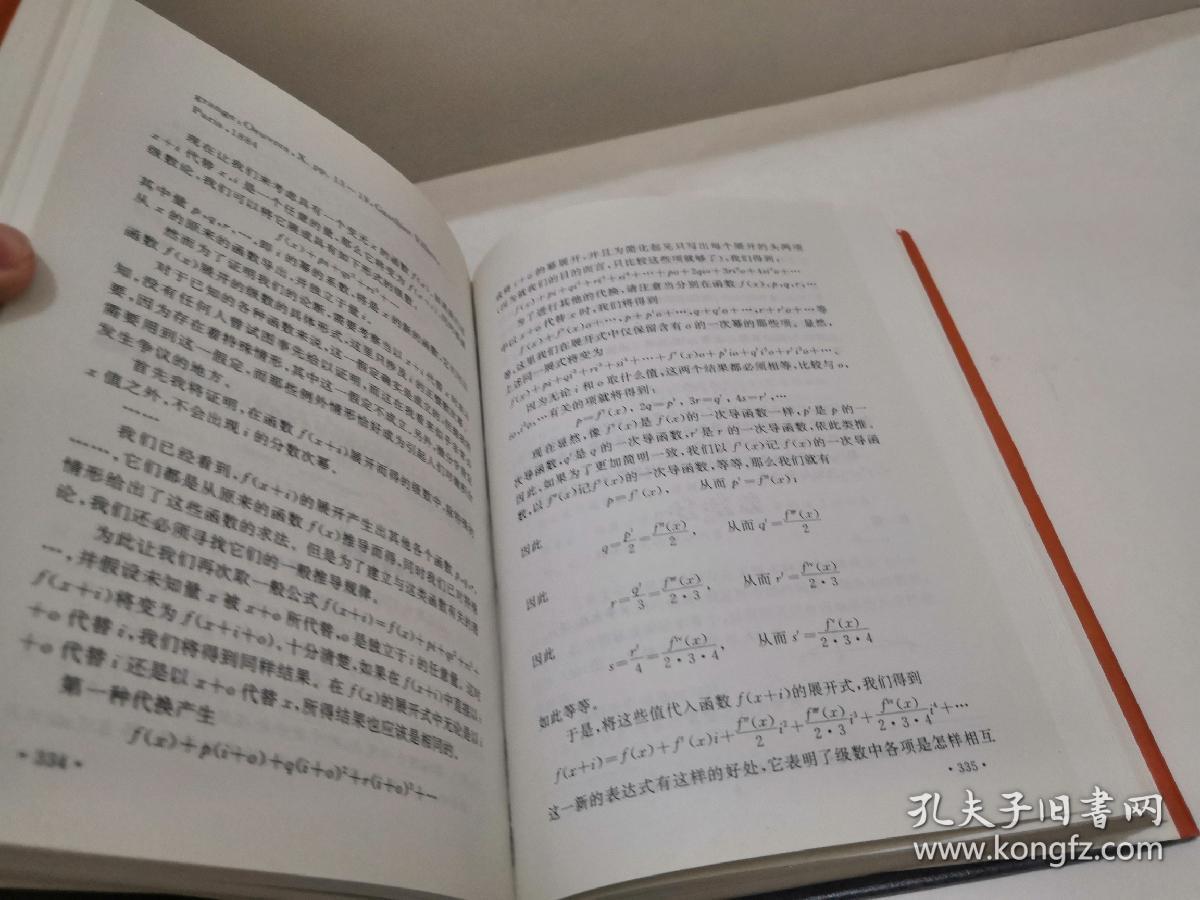 grange: Oeuvres, X, pp. 15—19, Gauthier Villars,
Paris, 1884
现在让我们来考虑具有一个变元x的函数f(x),
x+i代替x,i是一个任意的量,那么它将变为f(x+i),
级数论,我们可以将它展成具有如下形式的级数,
f(x)+pi+qi²+ri³+…
其中量p,q,r,…,即i的幂的系数,将是x的新的函数,
从x的原来的函数导出,并独立于量i。
然而为了证明我们的论断,需要考察当以x+i代替x时
函数f(x)展开的级数的具体形式,
对于已知的各种函数来说,这一假定确实是成立的,
知,没有任何人曾试图事先给以证明,而这在我看来
要,因为存在着特殊情形,其中这一假定不成立。
需要用到这一假定,而那些例外情形恰好成为引起人们对
发生争议的地方。
首先我将证明,在函数f(x+i)展开而得的级数中,
x值之外,不会出现i的分数次幂。
……
我们已经看到,f(x+i)的展开产生出其他各个函数p,q,r,
……,它们都是从原来的函数f(x)推导而得,同时我们已对特殊
情形给出了这些函数的求法。但是为了建立与这类函数有关的理
论,我们还必须寻找它们的一般推导规律。
为此让我们再次取一般公式f(x+i)=f(x)+pi+qi²+ri³+
……,并假设未知量x被x+o所代替,o是独立于i的任意量。这时
f(x+i)将变为f(x+i+o),十分清楚,如果在f(x+i)中直接以i
+o代替i,我们将得到同样结果。在f(x)的展开式中无论是以i
+o代替i还是以x+o代替x,所得结果也应该是相同的。
第一种代换产生
f(x)+p(i+o)+q(i+o)²+r(i+o)³+…
·334·
我将i+o的幂展开,并且为简化起见只写出每个展开的头两项
(因为就我们的目的而言,只比较这些项就够了),我们得到:
f(x)+pi+qi²+ri³+si⁴+…+po+2qio+3ri²o+4si³o+…
为了进行其他的代换,请注意当分别在函数f(x),p,q,r,…
中以x+o代替x时,我们将得到
f(x)+f′(x)o+…,p+p′o+…,q+q′o+…,r+r′o+…等
等,这里我们在展开式中仅保留含有o的一次幂的那些项。显然,
上述同一展式将变为
f(x)+pi+qi²+ri³+si⁴+…+f′(x)o+p′io+q′i²o+r′i³o+…,
因为无论i和o取什么值,这两个结果都必须相等,比较与o,
io,i²o,…有关的项就将得到:
p=f′(x), 2q=p′, 3r=q′, 4s=r′,…
现在显然,像f′(x)是f(x)的一次导函数一样,p′是p的一
次导函数,q′是q的一次导函数,r′是r的一次导函数,依此类推。
因此,如果为了更加简明一致,我们以f′(x)记f(x)的一次导函
数,以f″(x)记f′(x)的一次导函数,等等,那么我们就有
p=f′(x), 从而p′=f″(x);
因此 q=p′/2=f″(x)/2, 从而q′=f‴(x)/2
因此 r=q′/3=f‴(x)/2·3, 从而r′=fⁱᵛ(x)/2·3
因此 s=r′/4=fⁱᵛ(x)/2·3·4, 从而s′=fᵛ(x)/2·3·4
如此等等。
于是,将这些值代入函数f(x+i)的展开式,我们得到
f(x+i)=f(x)+f′(x)i+f″(x)/2 i²+f‴(x)/2·3 i³+fⁱᵛ(x)/2·3·4 i⁴+…
这一新的表达式有这样的好处,它表明了级数中各项是怎样相互
·335·
孔夫子旧书网
www.kongfz.com